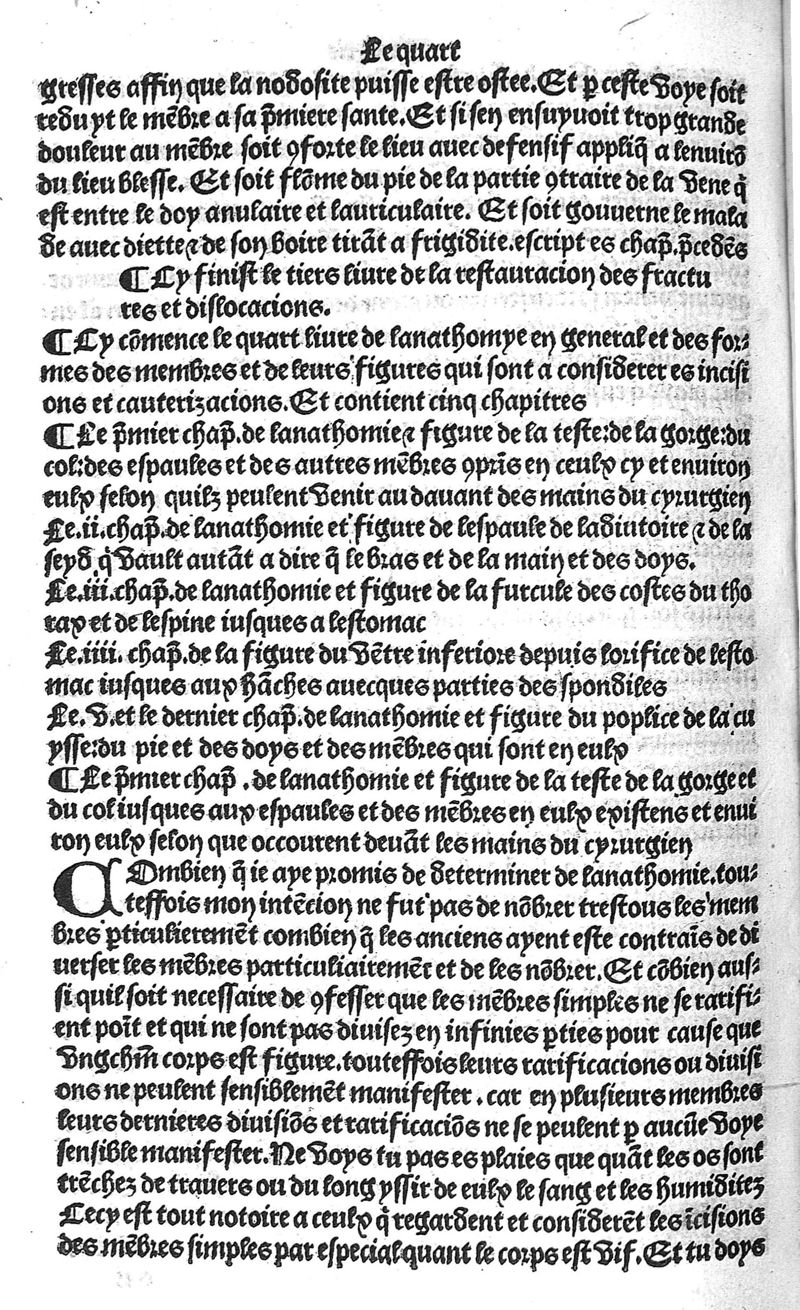 Le quart
gresses affin que la nodosite puisse estre ostee. Et ꝑ ceste voye soit
reduyt le mēbre a sa p̄miere sante. Et si sen ensuyuoit trop grande
douleur au mēbre soit ꝯforte le lieu auec defensif appliq̄ a lenuirō
du lieu blesse. Et soit flōme du pie de la partie ꝯtraire de la vene q̄
est entre le doy anulaire et lauriculaire. Et soit gouuerne le mala
de auec diette ⁊ de son boire tirāt a frigidite.escript es chap̄.p̄cedēs
¶ Cy finist le tiers liure de la restauracion des fractu
res et dislocacions.
¶ Cy cōmence le quart liure de lanathomye en general et des for⸗
mes des membres et de leurs figures qui sont a considerer es incisi
ons et cauterizacions. Et contient cinq chapitres
¶ Le p̄mier chap̄.de lanathomie ⁊ figure de la teste:de la gorge:du
col:des espaules et des autres mēbres ꝯprīs en ceulx cy et enuiron
eulx selon quilz peulent venir au dauant des mains du cyrurgien
Le.ii.chap̄.de lanathomie et figure de lespaule de ladiutoire ⁊ de la
seyd q̄ vault autāt a dire q̄ le bras et de la main et des doys.
Le.iii.chap̄.de lanathomie et figure de la furcule des costes du tho
rax et de lespine iusques a lestomac
Le.iiii. chap̄.de la figure du vētre inferiore depuis lorifice de lesto
mac iusques aux hāches auecques parties des spondiles
Le.v.et le dernier chap̄.de lanathomie et figure du poplice de la cu
ysse:du pie et des doys et des mēbres qui sont en eulx
¶ Le p̄mier chap̄ .de lanathomie et figure de la teste de la gorge et
du col iusques aux espaules et des mēbres en eulx existens et enui
ron eulx selon que occourent deuāt les mains du cyrurgien
COmbien q̄ ie aye promis de determiner de lanathomie.tou⸗
teffois mon intēcion ne fut pas de nōbrer trestous les mem
bres ꝑticulieremēt combien q̄ les anciens ayent este contraīs de di
uerser les mēbres particuliairemēt et de les nōbrer. Et cōbien aus⸗
si quil soit necessaire de ꝯfesser que les mēbres simples ne se rarifi⸗
ent poīt et qui ne sont pas diuisez en infinies ꝑties pour cause que
vngchm̄ corps est figure.touteffois leurs rarificacions ou diuisi
ons ne peulent sensiblemēt manifester .car en plusieurs membres
leurs dernieres diuisiōs et rarificaciōs ne se peulent ꝑ aucūe voye
sensible manifester. Ne voys tu pas es plaies que quāt les os sont
trēchez de trauers ou du long yssir de eulx le sang et les humiditez
Cecy est tout notoire a ceulx q̄ regardent et considerēt les īcisions
des mēbres simples par especial quant le corps est vif. Et tu doys